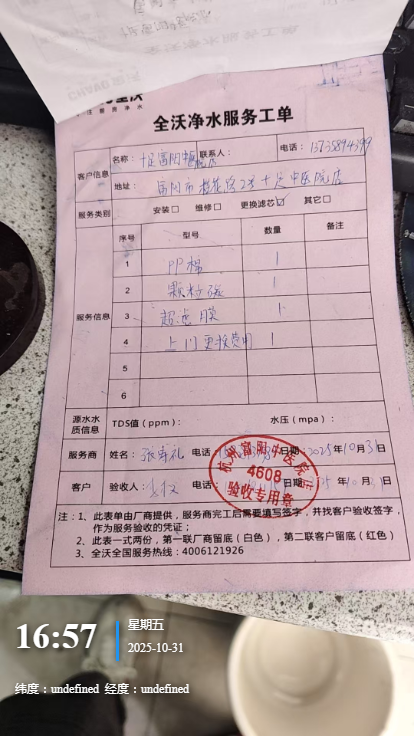 全沃净水服务工单
客户信息
名称：
联系人：
电话：
地址：富阳市桂花路2号十足中医院店
服务类别
安装□ 维修□ 更换滤芯☑ 其它□
服务信息
序号 型号 数量 备注
1 PP棉 1
2 颗粒碳 1
3 超滤膜 1
4 上门更换费用 1
5
6
源水水质信息
TDS值（ppm）： 水压（mpa）：
服务商 姓名： 电话： 日期：2025年10月31日
客户 验收人： 电话： 日期： 年10月 日
杭州富阳中医院店
4608
验收专用章
注：1、此表单由厂商提供，服务商完工后需要填写签字，并找客户验收签字，
作为服务验收的凭证；
2、此表一式两份，第一联厂商留底（白色），第二联客户留底（红色）
3、全沃全国服务热线：4006121926
16:57
星期五
2025-10-31
纬度：undefined 经度：undefined